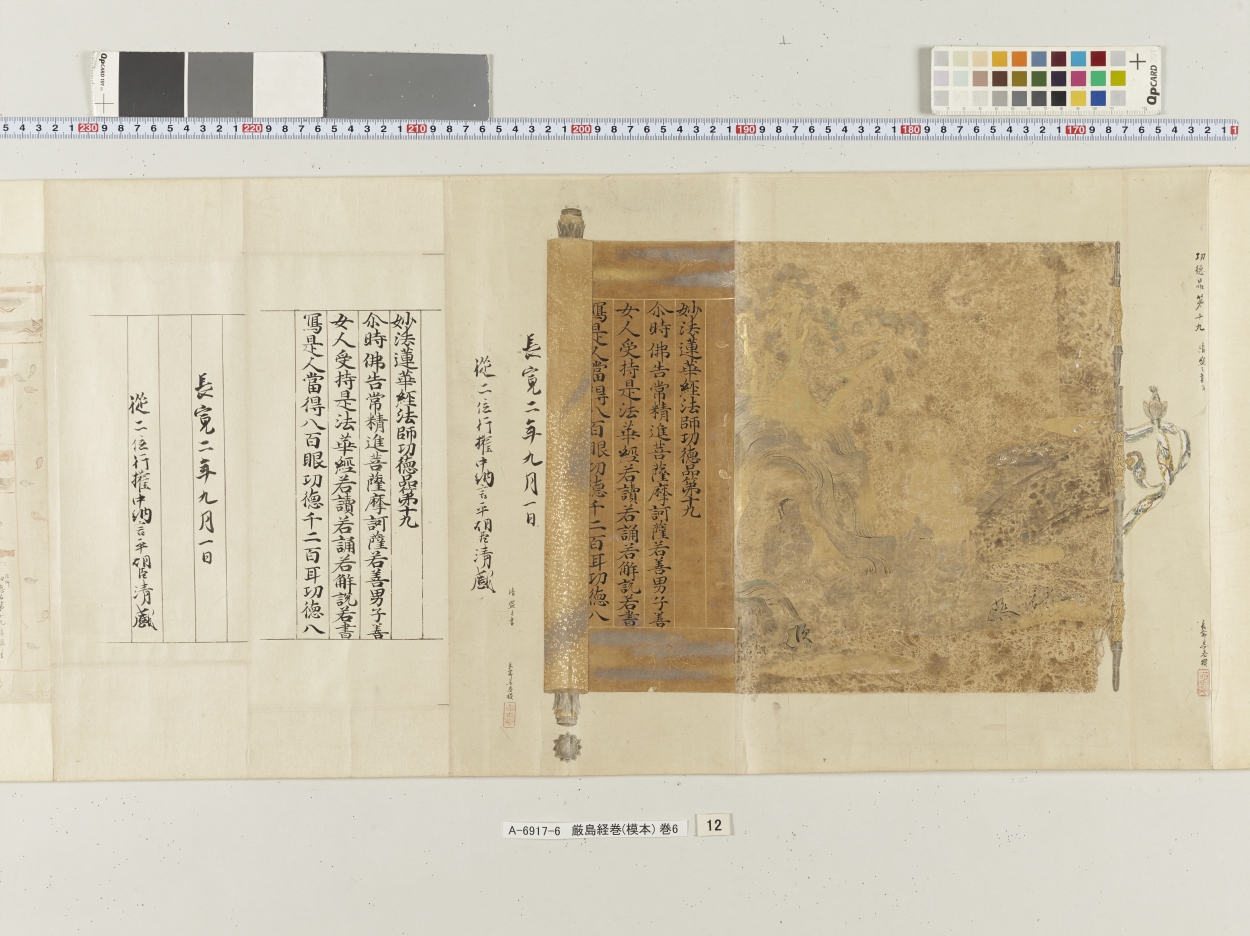 功徳品第十九
清盛之書
妙法蓮華經法師功徳品第十九
尒時佛告常精進菩薩摩訶薩若善男子善
女人受持是法華經若讀若誦若解説若書
寫是人當得八百眼功徳千二百耳功徳八
長寛二年九月一日
清盛之書
從二位行權中納言平朝臣清盛
妙法蓮華經法師功徳品第十九
尒時佛告常精進菩薩摩訶薩若善男子善
女人受持是法華經若讀若誦若解説若書
寫是人當得八百眼功徳千二百耳功徳八
長寛二年九月一日
從二位行權中納言平朝臣清盛
A-6917-6 厳島経巻(模本) 巻6
12
QpCARD
QpCARD
5 4 3 2 1 230 9 8 7 6 5 4 3 2 1 220 9 8 7 6 5 4 3 2 1 210 9 8 7 6 5 4 3 2 1 200 9 8 7 6 5 4 3 2 1 190 9 8 7 6 5 4 3 2 1 180 9 8 7 6 5 4 3 2 1 170 9 8 7 6 5 4 3 2 1 1